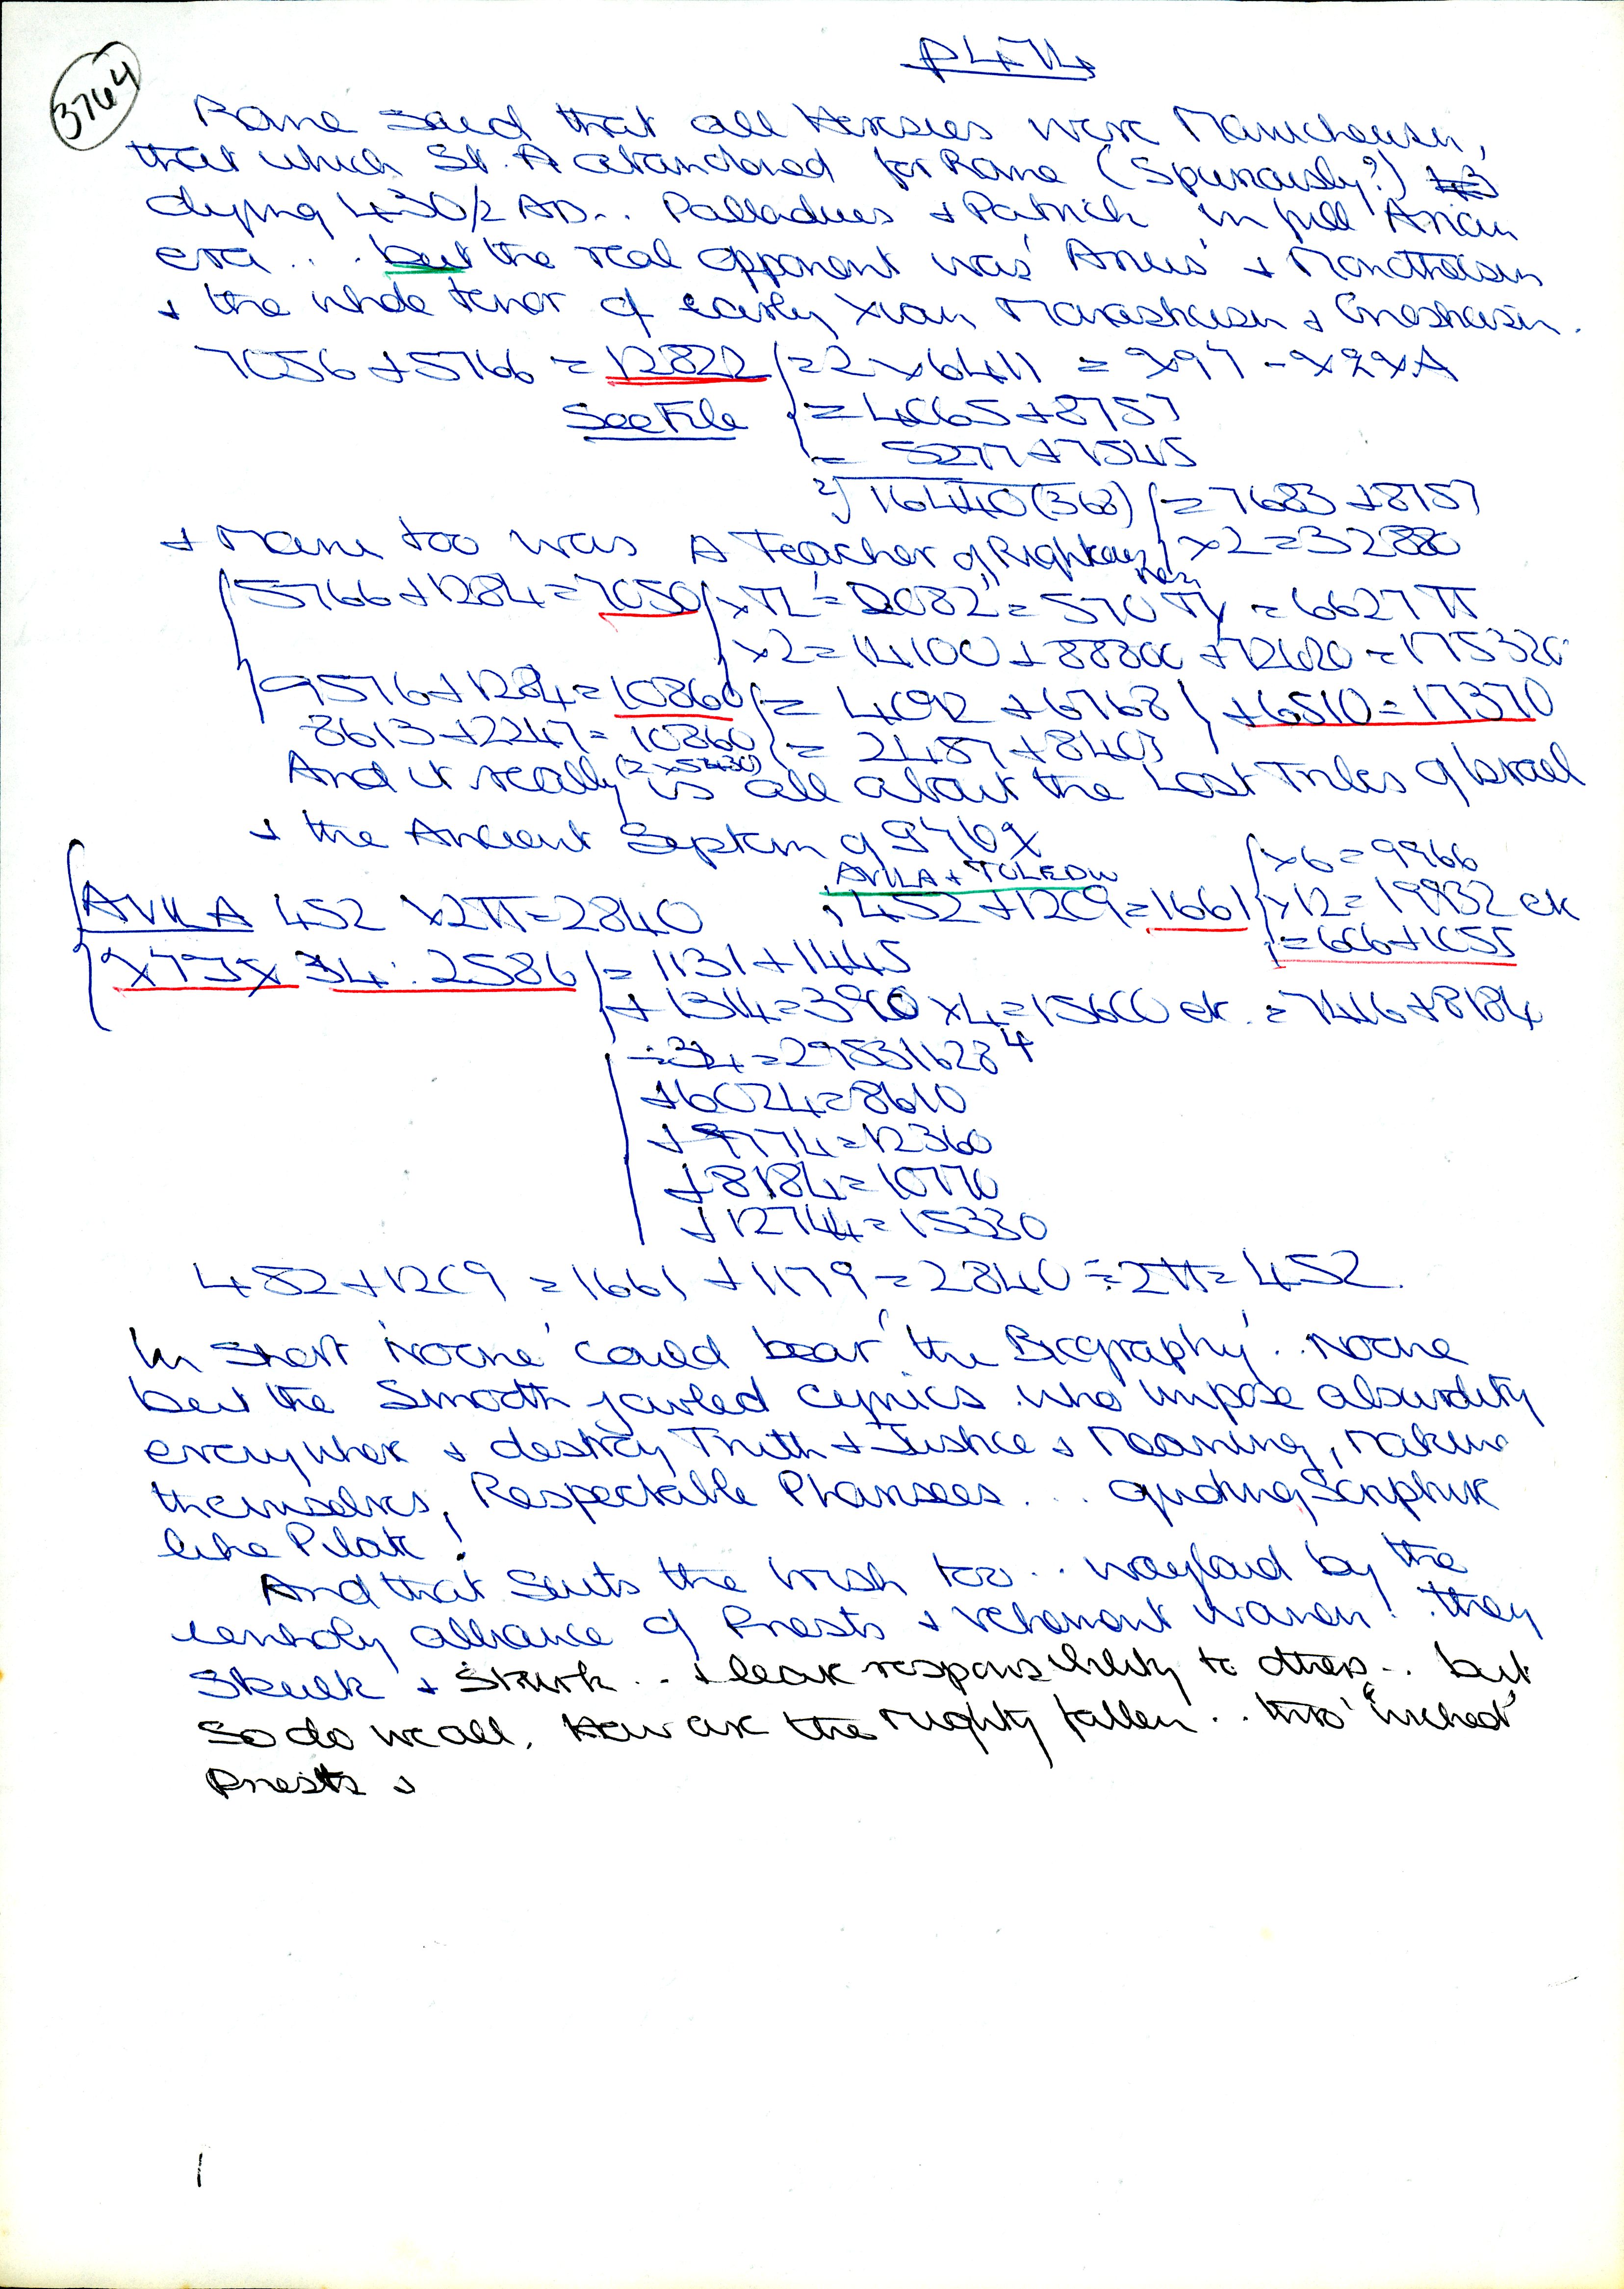 3764
P474
Rome said that all Heresies were Manichaeism,
that which St. A abandoned for Rome (Spuriously?)
dying 430/2 AD.. Palladius + Patrick in full Arian
era... but the real opponent was 'Arius' + Monotheism
+ the whole tenor of early Xian Monasticism + Gnosticism.
7056 + 5766 = 12822 = 2 x 6411 =
See File = 4065 + 8757
= 5277 + 7545
16440 (368) = 7683 + 8757
+ Mani too was A Teacher of Righteousness x2 = 32880
5766 + 1284 = 7050
x2 = 14100
9576 + 1284 = 10860 = 4092 + 6768 + 6510 = 17370
8613 + 2247 = 10860 = 2457 + 8403
(2 x 5430)
And it really is all about the Lost Tribes of Israel
+ the Ancient
AVILA + TOLEDO x6 = 9966
AVILA 452 x2π = 2840 ; 452 + 1209 = 1661 x12 = 19932 ek
= 606 + 1055
34 : 2586 = 1131 + 1445
+ 1314 = 3900 x4 = 15600 ek. = 7416 + 8184
+ 6024 = 8610
+ 9774 = 12360
+ 8184 = 10770
+ 12744 = 15330
452 + 1209 = 1661 + 1179 = 2840 ÷ 2π = 452.
In short 'Noone' could bear 'the Biography'.. Noone
but the Smooth jawled cynics who impose absurdity
everywher + destroy Truth + Justice + Meaning, making
themselves, Respectable Pharisees... quoting Scripture
like Pilate!
And that suits the Irish too.. waylaid by the
unholy alliance of Priests + vehement women! they
Skulk + Shirk.. + leave responsibility to others.. but
so do we all. How are the mighty fallen.. this 'wicked'
Priests +